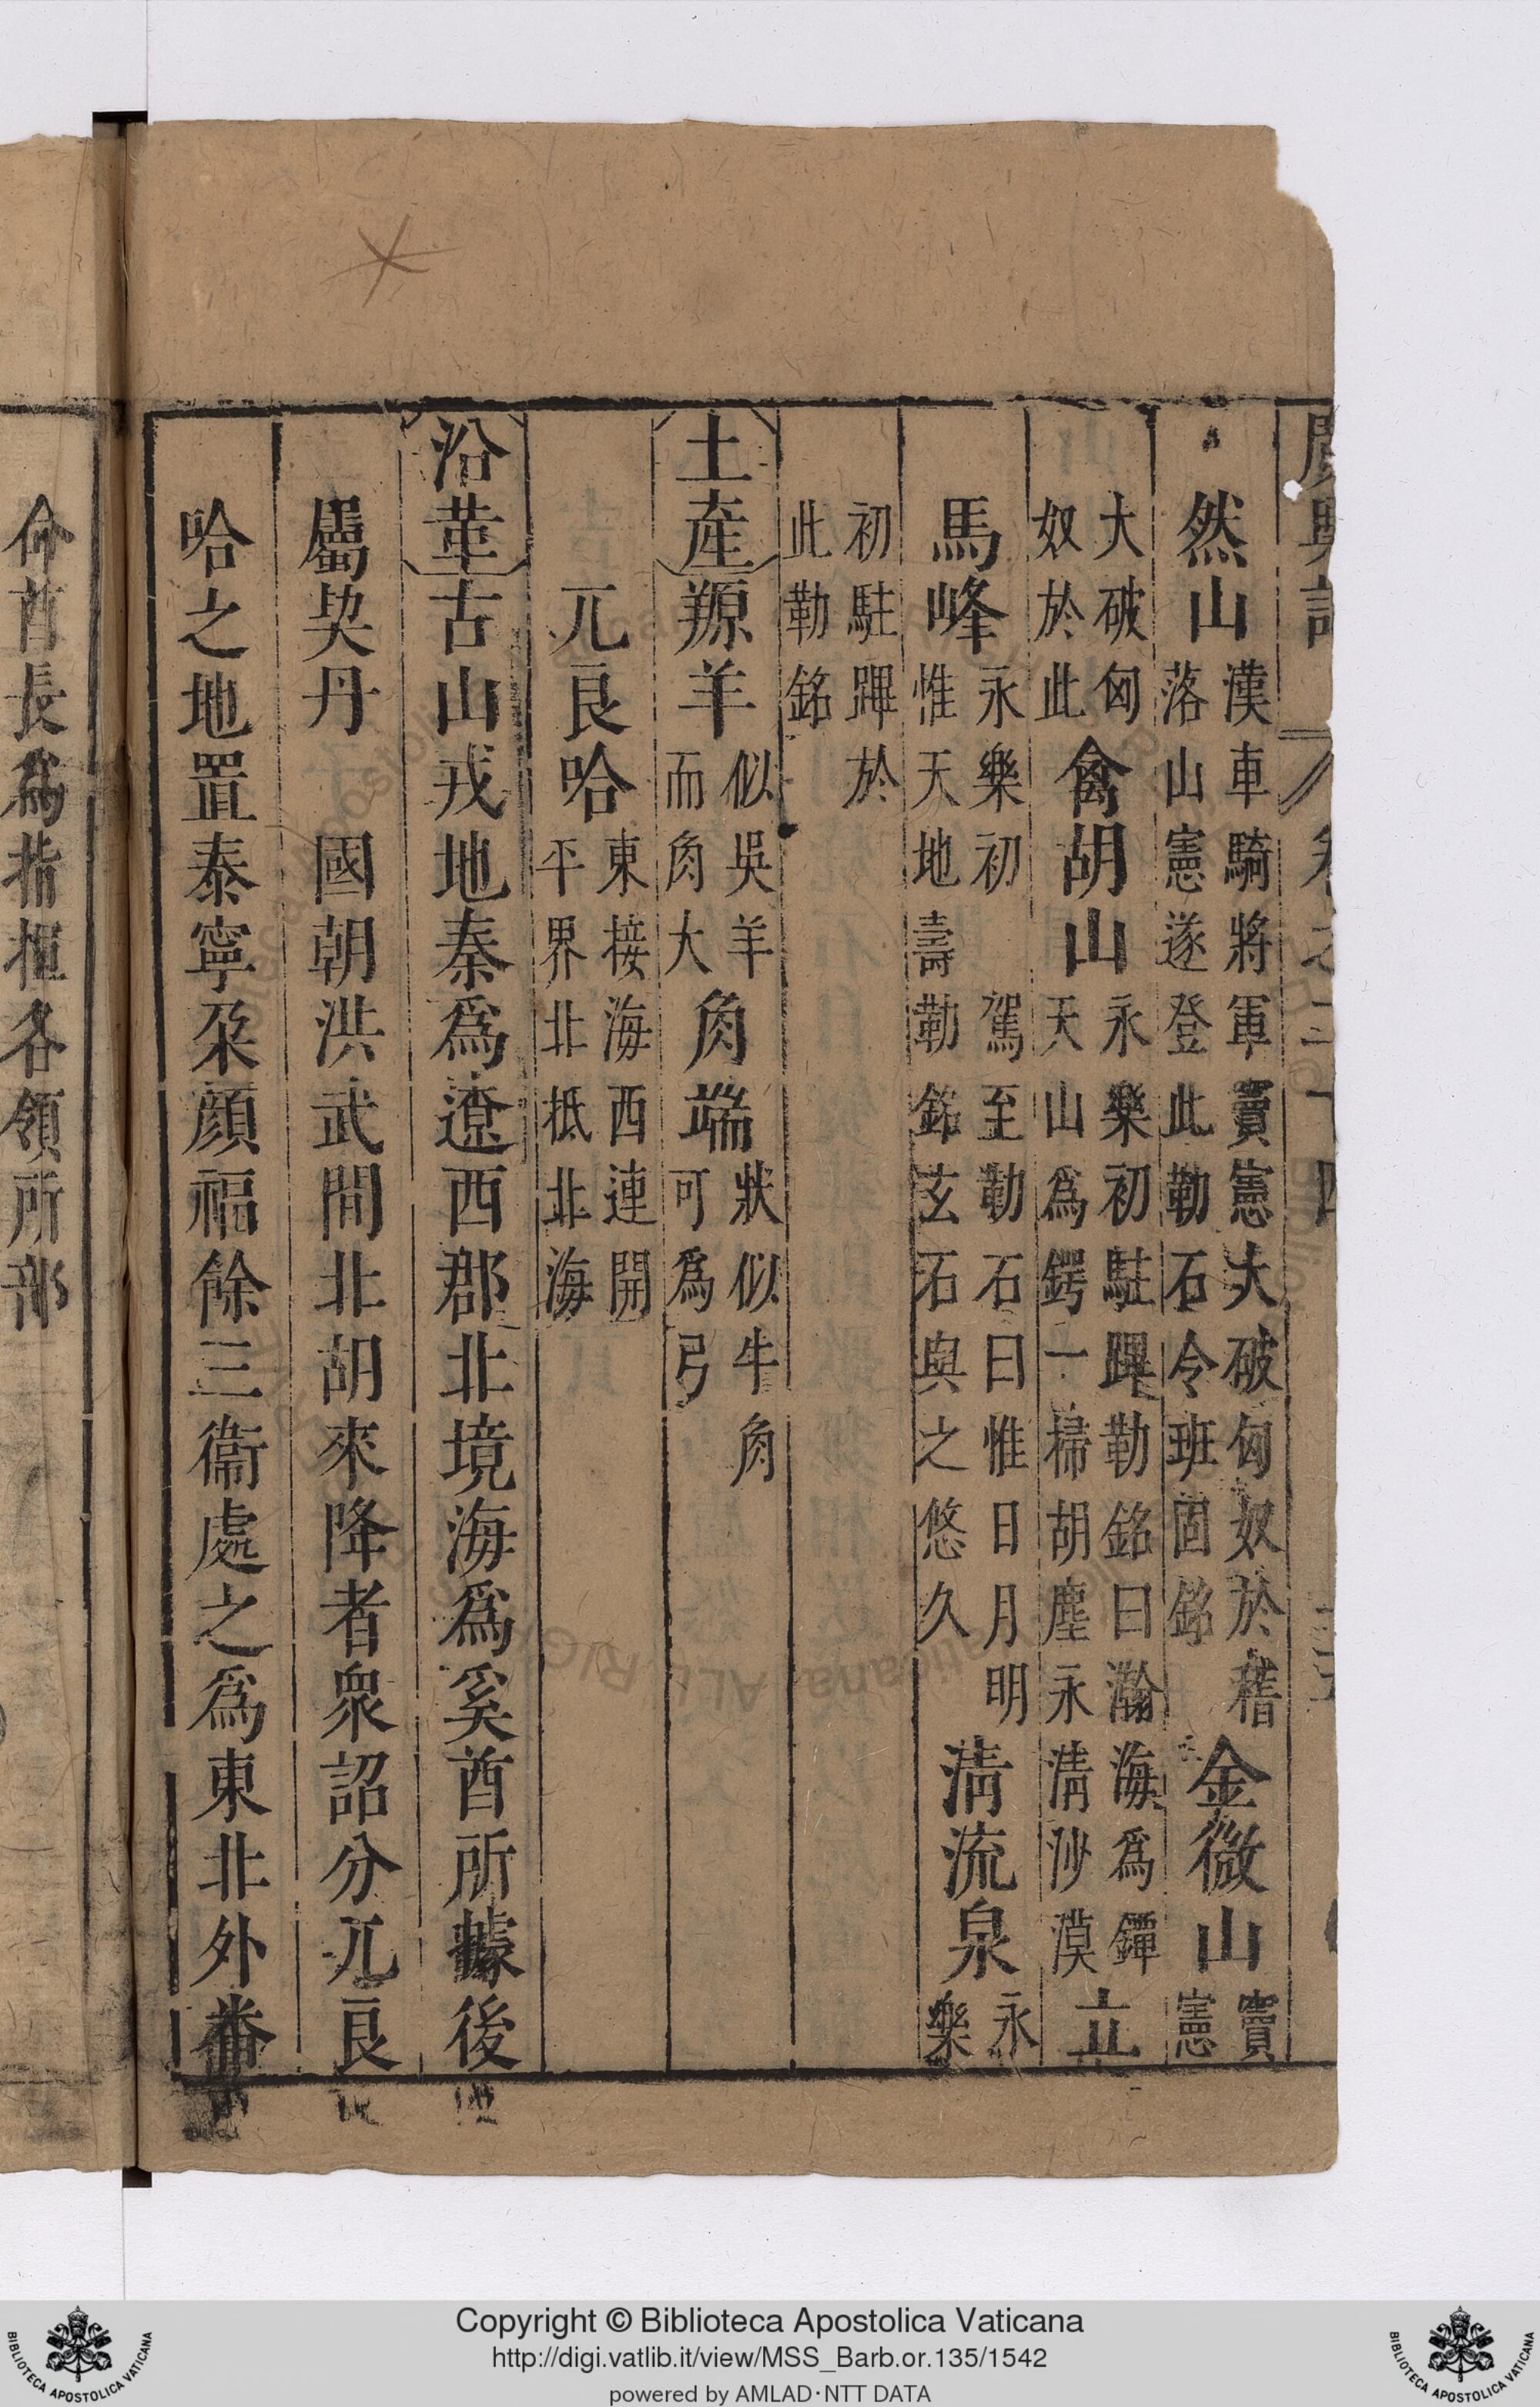 廣輿記 卷之二十四
然山漢車騎將軍竇憲大破匈奴於稽落山憲遂登此勒石令班固銘金微山竇憲
大破匈奴於此禽胡山永樂初駐蹕勒銘曰瀚海爲鐔天山爲鍔一掃胡塵永清沙漠立
馬峰永樂初 駕至勒石曰惟日月明惟天地壽勒銘玄石與之悠久清流泉永樂
初駐蹕於此勒銘
土產羱羊似吳羊而角大角端狀似牛角可爲弓
兀良哈東接海西連開平界北抵北海
沿革古山戎地秦爲遼西郡北境海爲奚酋所據後
屬契丹 國朝洪武間北胡來降者衆詔分兀良
哈之地置泰寧朶顏福餘三衞處之爲東北外番
命酋長爲指揮各領所部
Copyright © Biblioteca Apostolica Vaticana
http://digi.vatlib.it/view/MSS_Barb.or.135/1542
powered by AMLAD·NTT DATA
BIBLIOTECA APOSTOLICA VATICANA
BIBLIOTECA APOSTOLICA VATICANA